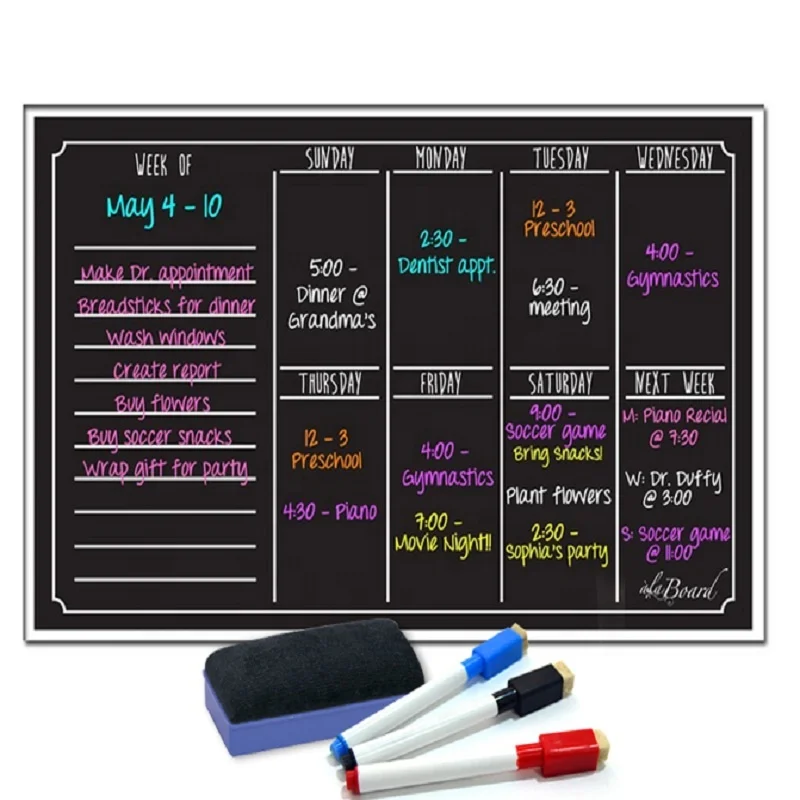 WEEK OF
May 4 - 10
Make Dr. appointment
Breadsticks for dinner
Wash Windows
Create report
Buy flowers
Buy soccer snacks
Wrap gift for party
SUNDAY
5:00 -
Dinner @
Grandma's
MONDAY
2:30 -
Dentist appt.
TUESDAY
12 - 3
Preschool
6:30 -
meeting
WEDNESDAY
4:00 -
Gymnastics
THURSDAY
12 - 3
Preschool
4:30 - Piano
FRIDAY
4:00 -
Gymnastics
7:00 -
Movie Night!!
SATURDAY
9:00 -
Soccer game
Bring Snacks!
Plant flowers
2:30 -
Sophia's party
NEXT WEEK
M: Piano Recial
@ 7:30
W: Dr. Duffy
@ 3:00
S: Soccer game
@ 11:00
àlaBoard